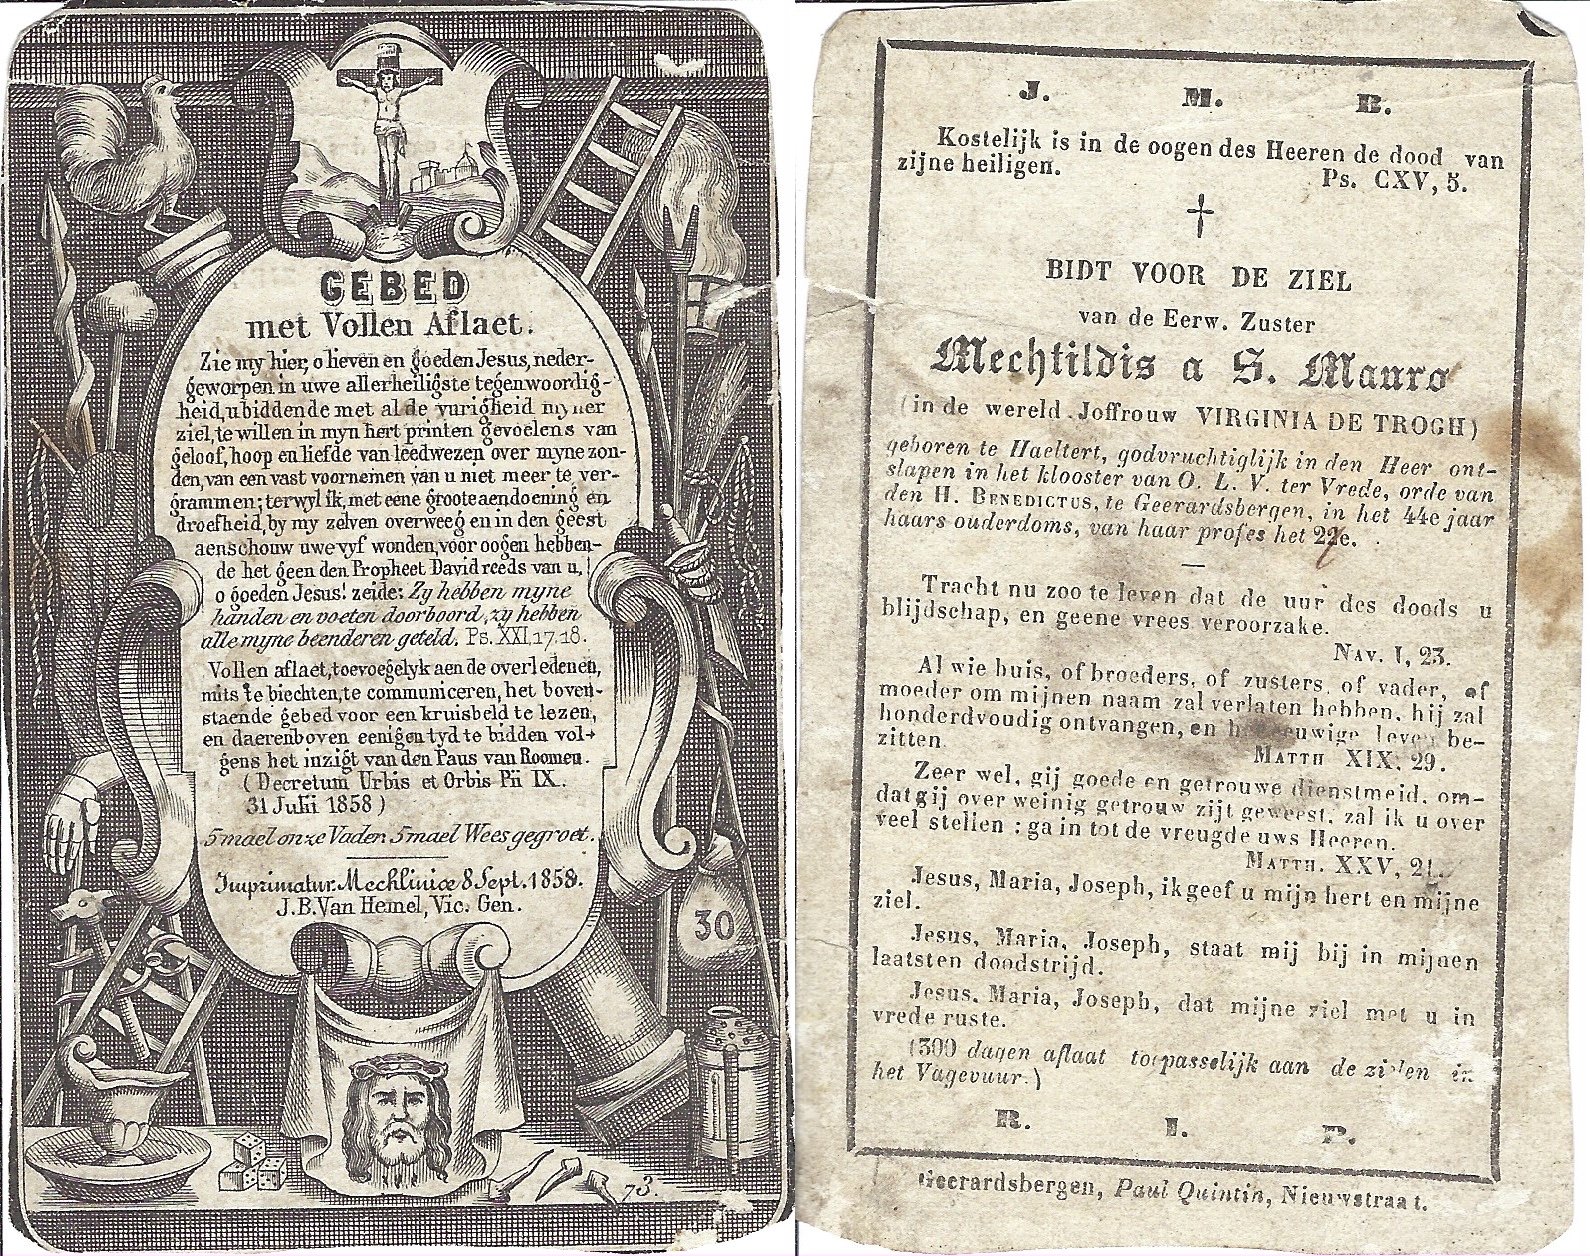 GEBED
met Vollen Aflaet.
Zie my hier, o lieven en goeden Jesus, neder-
geworpen in uwe allerheiligste tegenwoordig-
heid, u biddende met al de vurigheid myner
ziel, te willen in myn hert printen gevoelens van
geloof, hoop en liefde van leedwezen over myne zon-
den, van een vast voornemen van u niet meer te ver-
grammen; terwyl ik, met eene groote aendoening en
droefheid, by my zelven overweeg en in den geest
aenschouw uwe vyf wonden, voor oogen hebben-
de het geen den Propheet David reeds van u,
o goeden Jesus! zeide: Zy hebben myne
handen en voeten doorboord, zy hebben
alle myne beenderen geteld. Ps. XXI. 17. 18.
Vollen aflaet, toevoegelyk aen de overledenen,
mits te biechten, te communiceren, het boven-
staende gebed voor een kruisbeld te lezen,
en daerenboven eenigen tyd te bidden vol-
gens het inzigt van den Paus van Roomen.
(Decretum Urbis et Orbis Pii IX.
31 Julii 1858)
5 mael onze Vader. 5 mael Wees gegroet.
Imprimatur. Mechliniæ 8 Sept. 1858.
J.B. Van Hemel, Vic. Gen.
30
73.
J. M. B.
Kostelijk is in de oogen des Heeren de dood van
zijne heiligen. Ps. CXV, 5.
BIDT VOOR DE ZIEL
van de Eerw. Zuster
Mechtildis a S. Mauro
(in de wereld Joffrouw VIRGINIA DE TROGH)
geboren te Haeltert, godvruchtiglijk in den Heer ont-
slapen in het klooster van O. L. V. ter Vrede, orde van
den H. BENEDICTUS, te Geerardsbergen, in het 44e jaar
haars ouderdoms, van haar profes het 22e.
Tracht nu zoo te leven dat de uur des doods u
blijdschap, en geene vrees veroorzake.
NAV. I, 23.
Al wie huis, of broeders, of zusters, of vader, of
moeder om mijnen naam zal verlaten hebben, hij zal
honderdvoudig ontvangen, en het eeuwige leven be-
zitten. MATTH XIX, 29.
Zeer wel, gij goede en getrouwe dienstmeid, om-
dat gij over weinig getrouw zijt geweest, zal ik u over
veel stellen : ga in tot de vreugde uws Heeren.
MATTH. XXV, 21.
Jesus, Maria, Joseph, ik geef u mijn hert en mijne
ziel.
Jesus, Maria, Joseph, staat mij bij in mijnen
laatsten doodstrijd.
Jesus, Maria, Joseph, dat mijne ziel met u in
vrede ruste.
(300 dagen aflaat toepasselijk aan de zielen in
het Vagevuur.)
R. I. P.
Geerardsbergen, Paul Quintin, Nieuwstraat.